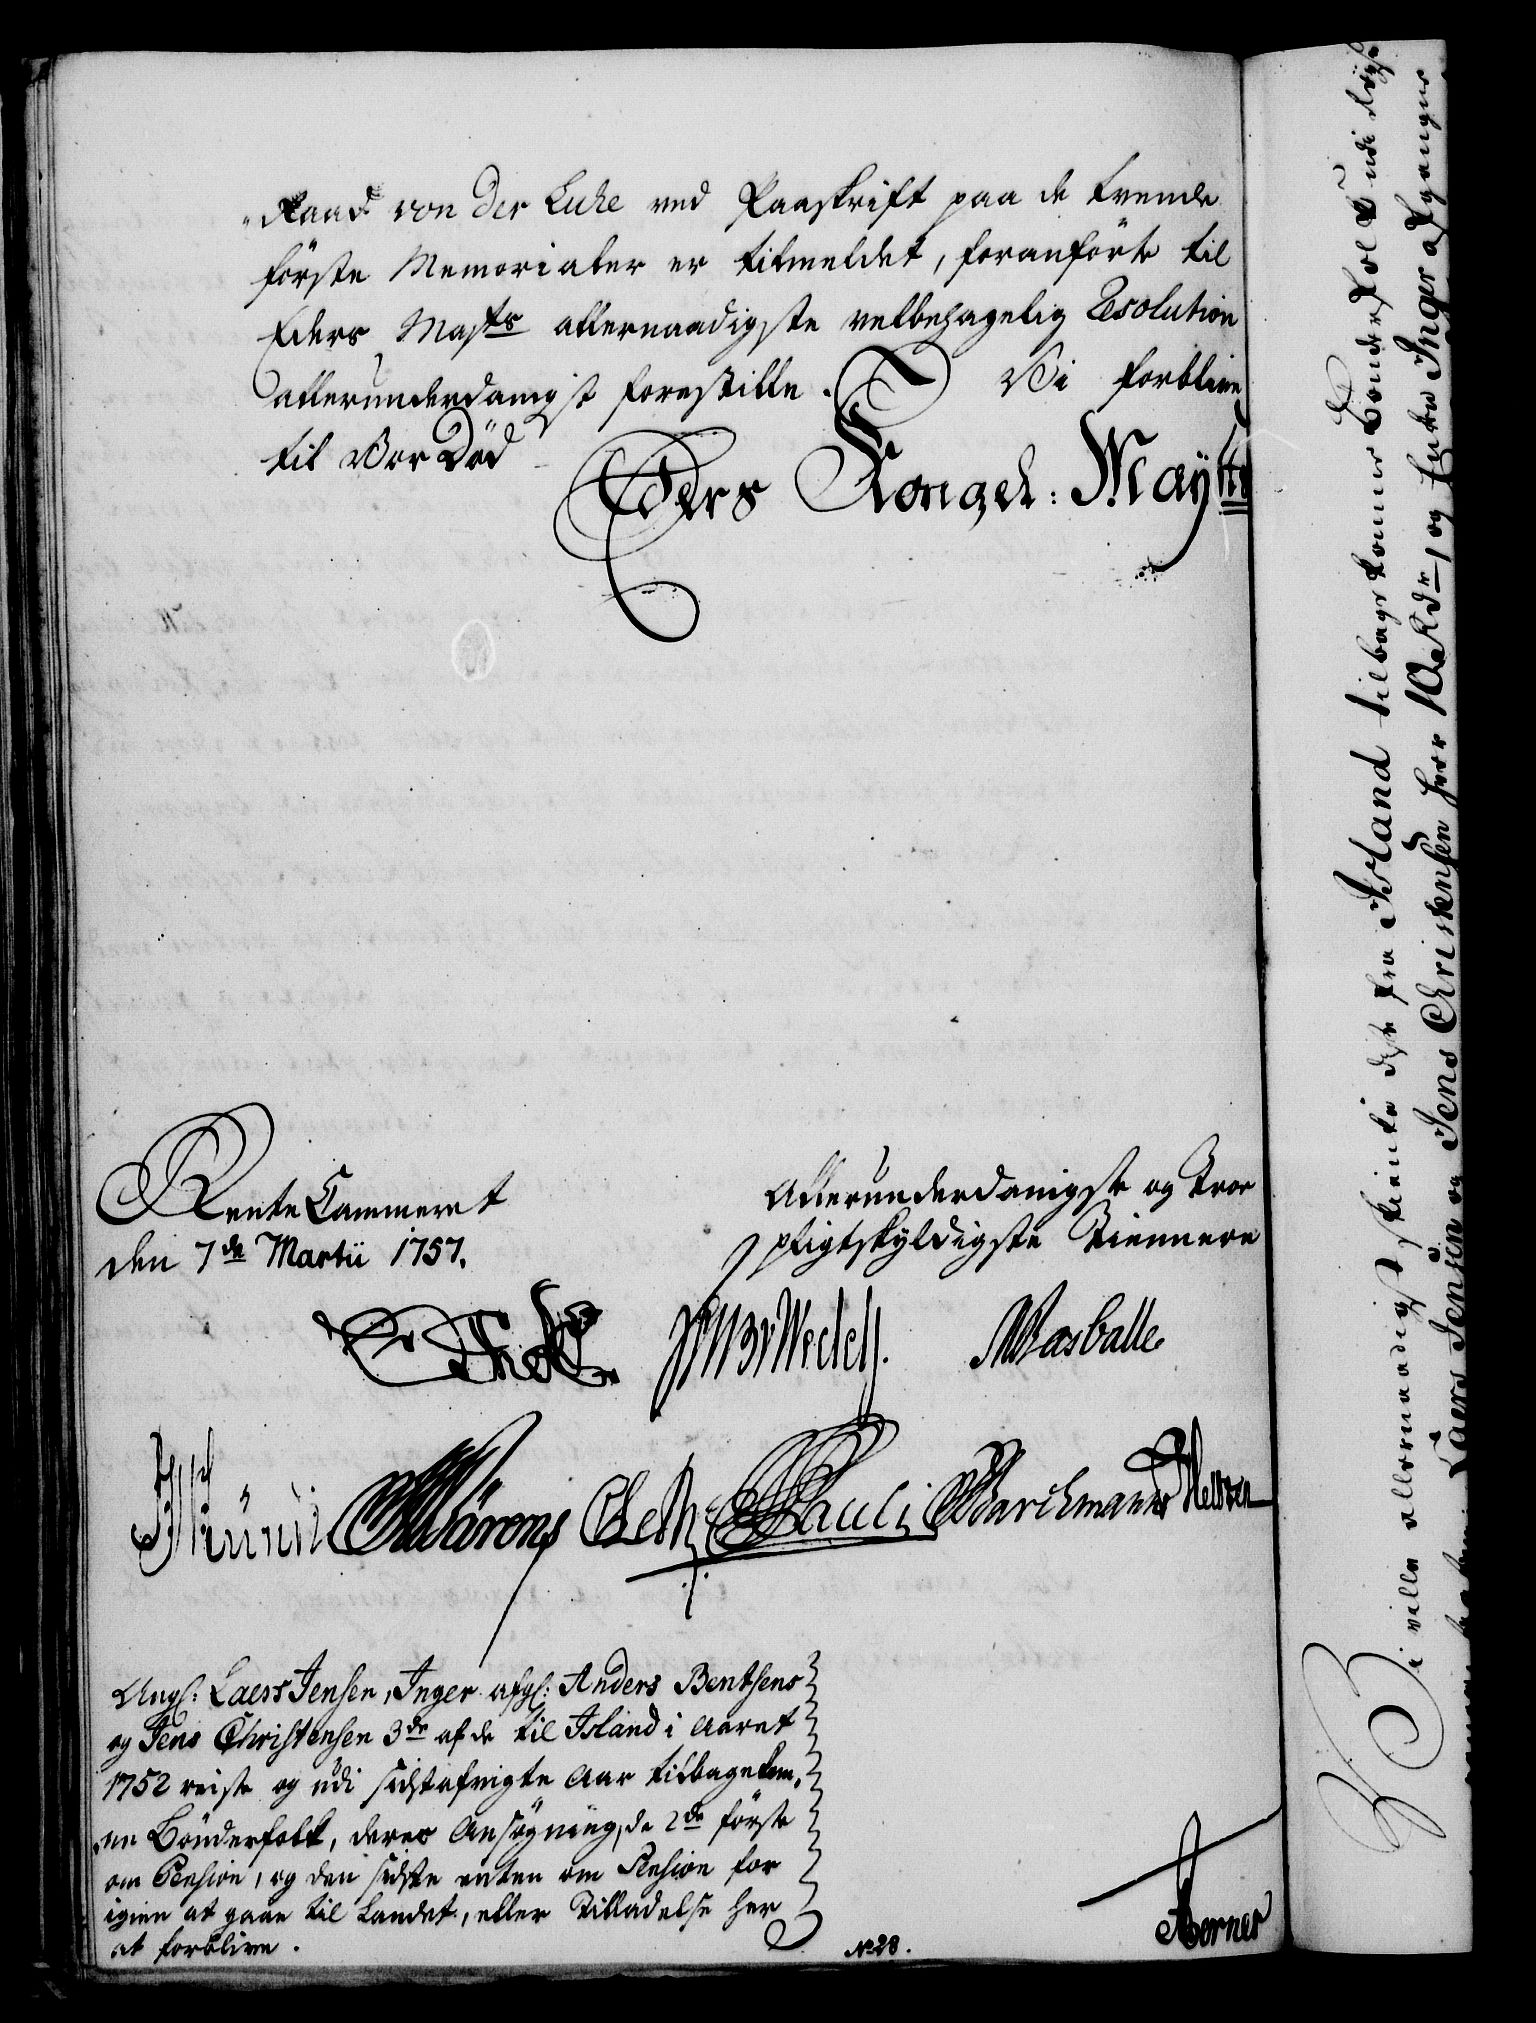 Raad von der Luhe ved Paaskrift paa de tvende
förste Memorialer er tilmeldet, foranförte til
Eders Maÿts allernaadigste velbehagelig Resolution
allerunderdanigst forestille. Vi forblive
til Vor Död
Eders Kongel: Maÿts
Rente Cammeret
den 7de Martii 1757.
Allerunderdanigste og Troe
pligtskyldigste Tiennere
Wedell. Wasballe
Pauli Barchmann
Ang: Laers Jensen, Inger afg: Anders Bentsens
og Jens Christensen 3de af de til Island i Aaret
1752 reiste og udi sidstafvigte Aar tilbagekom,
ne Bönderfolk, deres Ansögning, de 2de förste
om Pension, og den sidste enten om Pension for
igien at gaae til Landet, eller Tilladelse her
at forblive.
No 28.
Aerner
Vi ville allernaadigst skienke disse fra Island tilbagekomne Bönderfolk, udi
Laers Jensen og Jens Christensen hver 10 Rdr, og Enken Inger afgangne